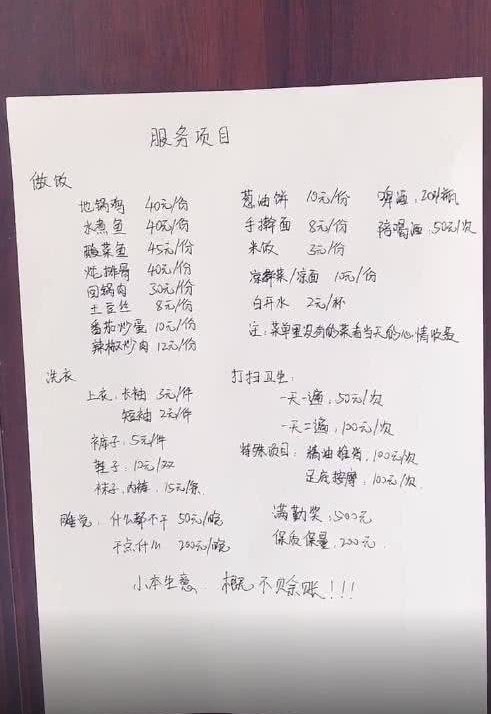 服务项目
做饭
地锅鸡 40元/份
水煮鱼 40元/份
酸菜鱼 45元/份
炖排骨 40元/份
回锅肉 30元/份
土豆丝 8元/份
番茄炒蛋 10元/份
辣椒炒肉 12元/份
葱油饼 10元/份 啤酒:20元/瓶
手擀面 8元/份 陪喝酒:50元/次
米饭 3元/份
凉拌菜/凉面 10元/份
白开水 2元/杯
注:菜单里没有的菜看当天的心情收费
洗衣
上衣:长袖 3元/件
短袖 2元/件
裤子:5元/件
鞋子:10元/双
袜子,内裤:15元/条
打扫卫生:
一天一遍,50元/次
一天二遍,100元/次
特殊项目:精油推背,100元/次
足底按摩,100元/次
睡觉:什么都不干 50元/晚
干点什么 200元/晚
满勤奖:500元
保质保量,200元
小本生意 概不赊账!!!